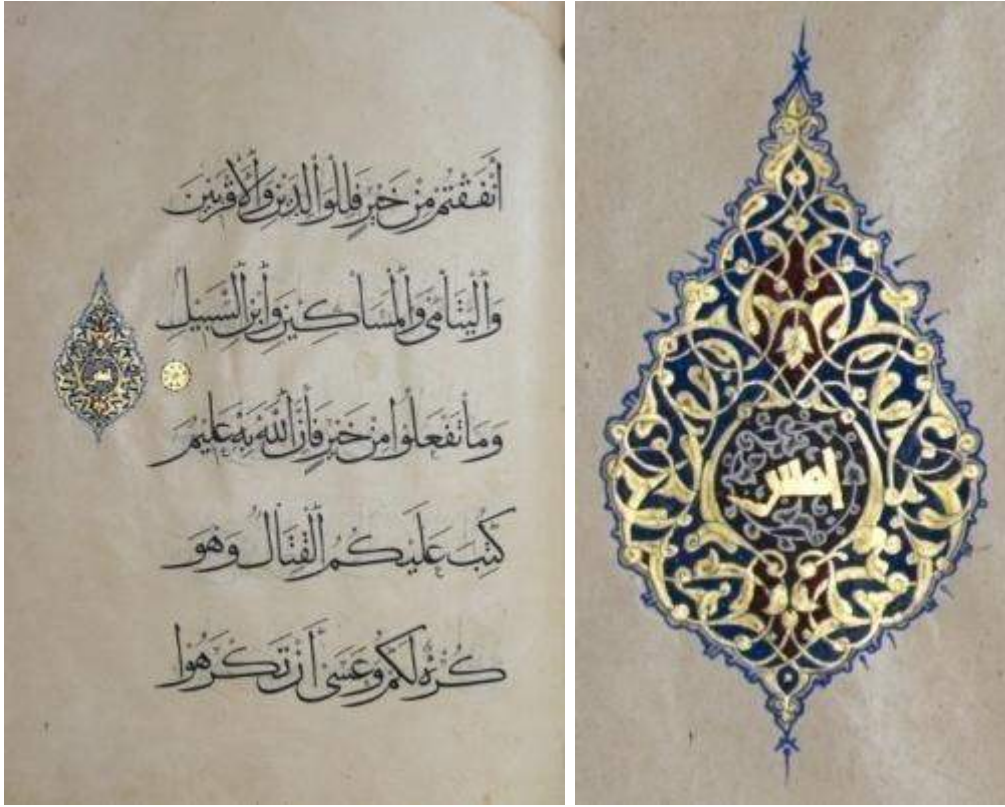 أَنْفَقْتُمْ مِنْ خَيْرٍ فَلِلْوَالِدَيْنِ وَالْأَقْرَبِينَ
وَالْيَتَامَىٰ وَالْمَسَاكِينِ وَابْنِ السَّبِيلِ
وَمَا تَفْعَلُوا مِنْ خَيْرٍ فَإِنَّ اللَّهَ بِهِ عَلِيمٌ
كُتِبَ عَلَيْكُمُ الْقِتَالُ وَهُوَ
كُرْهٌ لَكُمْ وَعَسَىٰ أَنْ تَكْرَهُوا